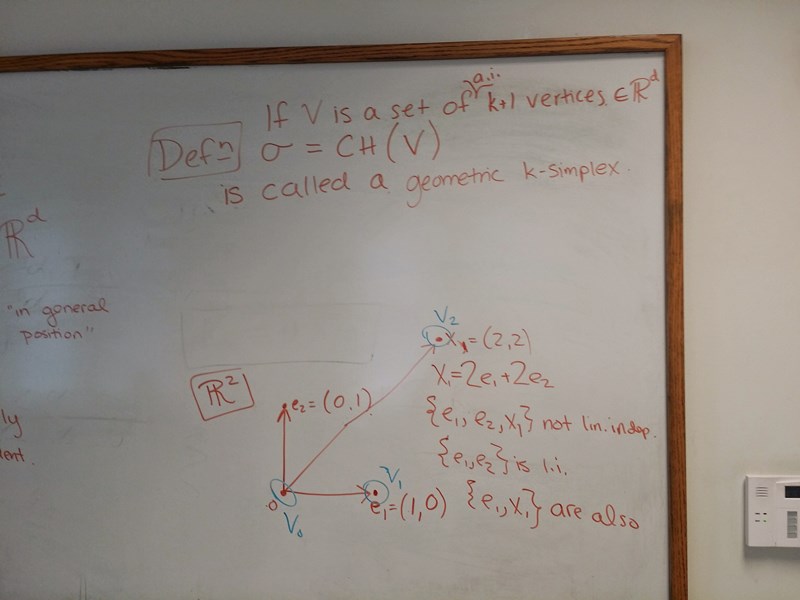 If V is a set of a.i. k+1 vertices ∈ ℝᵈ
Defⁿ σ = CH(V)
is called a geometric k-simplex.
ℝᵈ
"in general
position"
ly
ent.
ℝ²
V₂
x₁ = (2,2)
x₁ = 2e₁ + 2e₂
e₂ = (0,1)
{e₁, e₂, x₁} not lin. indep.
{e₁, e₂} is l.i.
V₁
e₁ = (1,0)
{e₁, x₁} are also
0
V₀